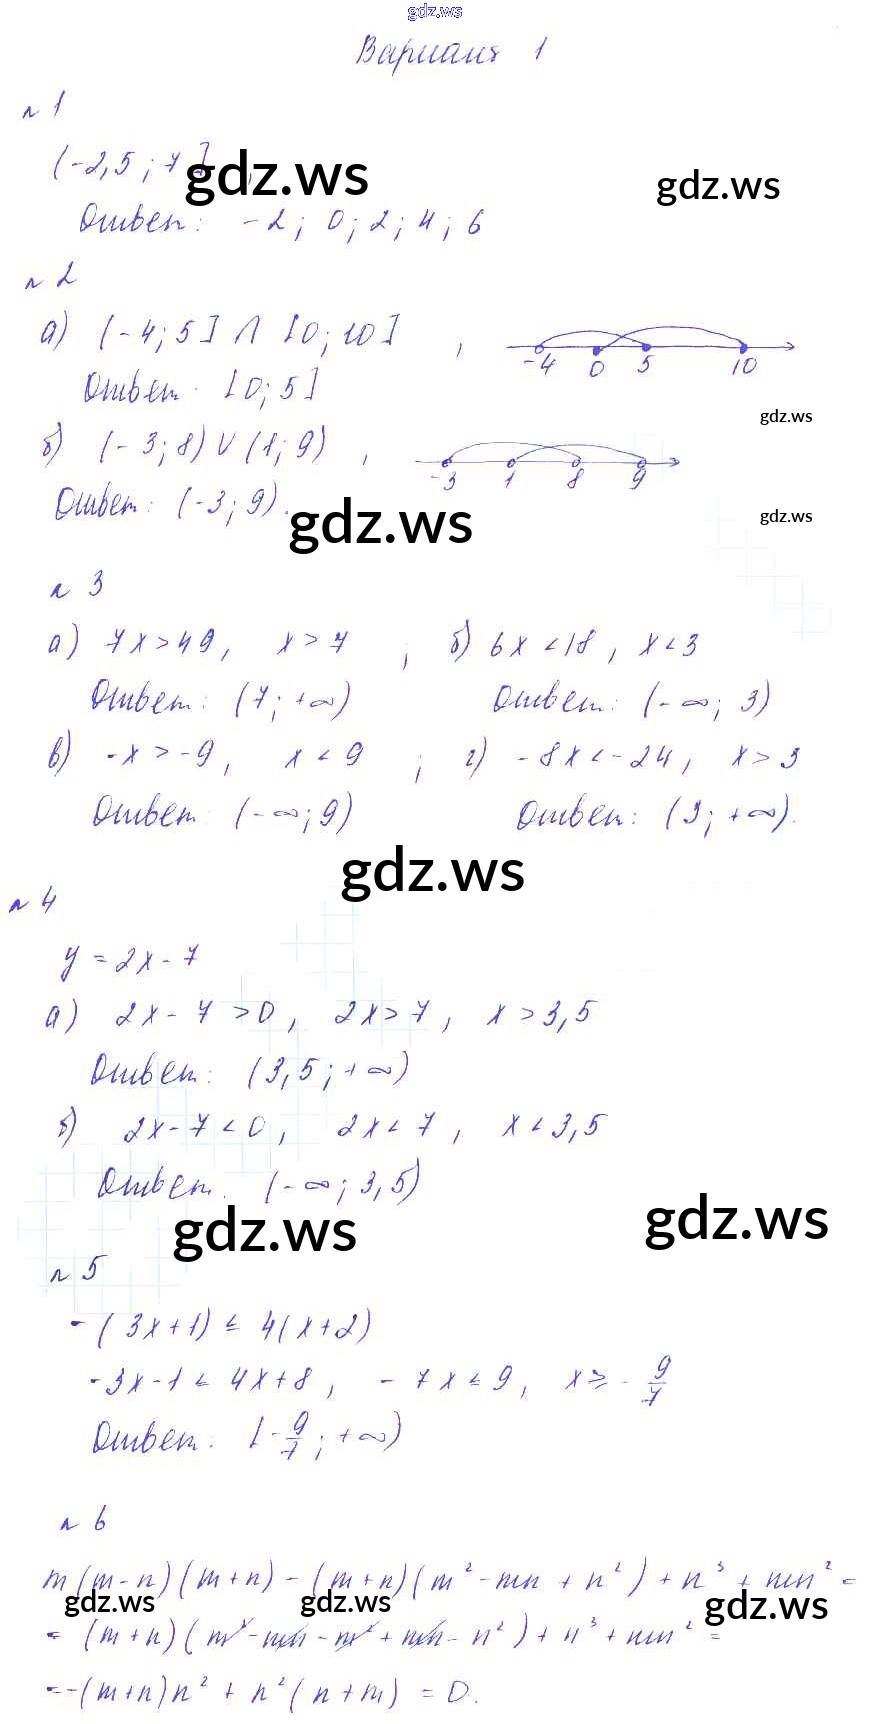 gdz.ws
Вариант 1
n 1
(-2,5 ; 7] ,
gdz.ws
gdz.ws
Ответ: -2; 0; 2; 4; 6
n 2
а) (-4; 5] ∩ [0; 10] ,
-4 0 5 10
Ответ: [0; 5]
gdz.ws
б) (-3; 8) ∪ (1; 9) ,
-3 1 8 9
Ответ: (-3; 9).
gdz.ws
gdz.ws
n 3
а) 7x > 49, x > 7 ; б) 6x < 18, x < 3
Ответ: (7; +∞) Ответ: (-∞; 3)
в) -x > -9, x < 9 ; г) -8x < -24, x > 3
Ответ: (-∞; 9) Ответ: (3; +∞).
gdz.ws
n 4
y = 2x - 7
а) 2x - 7 > 0, 2x > 7, x > 3,5
Ответ: (3,5; +∞)
б) 2x - 7 < 0, 2x < 7, x < 3,5
Ответ. (-∞; 3,5)
gdz.ws
gdz.ws
n 5
-(3x+1) ≤ 4(x+2)
-3x-1 ≤ 4x+8, -7x ≤ 9, x ≥ -9/7
Ответ: [-9/7; +∞)
n 6
m(m-n)(m+n) - (m+n)(m² - mn + n²) + n³ + mn² =
gdz.ws
gdz.ws
gdz.ws
= (m+n)(m² - mn - m² + mn - n²) + n³ + mn² =
= -(m+n)n² + n²(n+m) = 0.